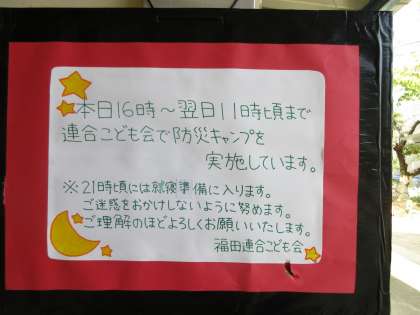 本日16時～翌日11時頃まで
連合こども会で防災キャンプを
実施しています。
※21時頃には就寝準備に入ります。
ご迷惑をおかけしないように努めます。
ご理解のほどよろしくお願いいたします。
福田連合こども会